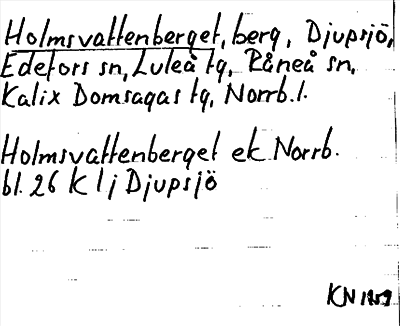 Holmsvattenberget, berg, Djupsjö,
Edefors sn, Luleå tg, Råneå sn,
Kalix Domsagas tg, Norrb. l.
Holmsvattenberget ek Norrb.
bl. 26 K l j Djupsjö
KN 1959